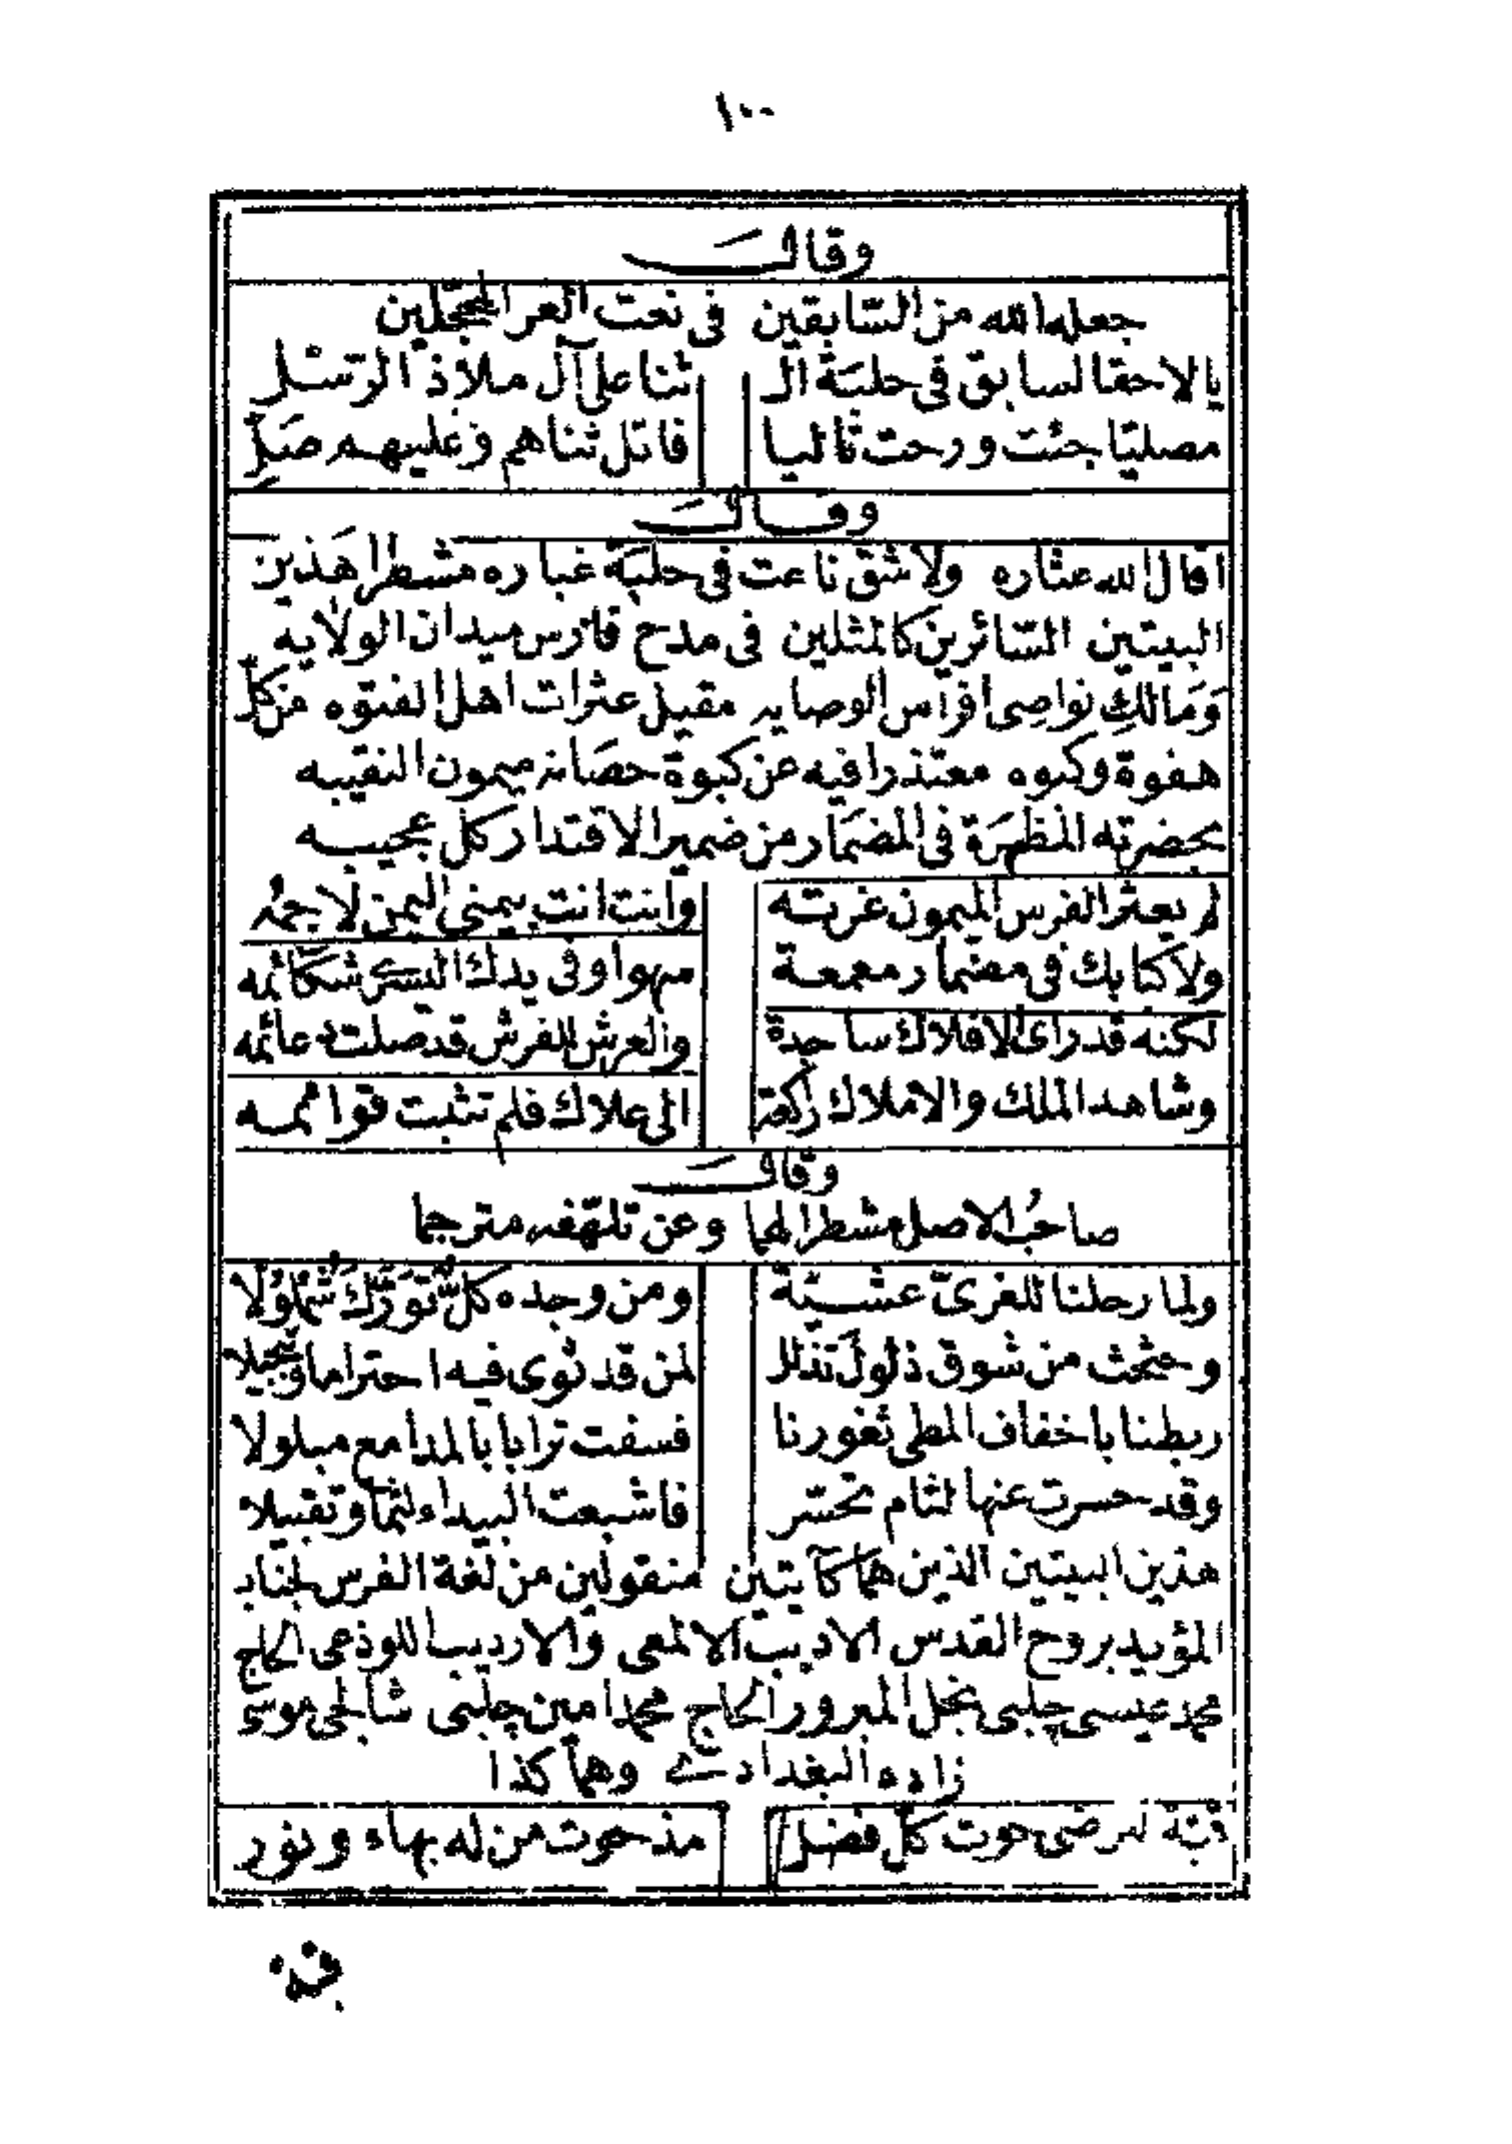 ١٠٠
وقال
جعله الله من السّابقين في نعت الغر المحجّلين
يا لاحقا لسابق في حلبَة الـ ثنا على آل ملاذ الرّسل
مصليّا جئت ورحت تاليا فاتل ثناهم وعليهم صَلّ
وقال
اقال الله عثاره ولا شق ناعت في حلبَة غباره مشطرا هَذين
البيتين السّائرين كالمثلين في مدح فارس ميدان الولايه
وَمَالكِ نواصِى افراس الوصايه مقيل عثرات اهل الفتوه من كلّ
هفوة وكبوه معتذرا فيه عن كبوة حصَانه ميمون النقيبه
بحضرته المظهرَة في المضمَار من ضمير الاقتدار كل عجيبه
لم يعثر الفرس الميمون غرته وانت انت بيمنى اليمن لاجمُه
ولا كبا بك في مضمار معمعة سهوا وفي يدك اليسرى شكائمه
لكنه قد راى الافلاك ساجدة والعرش للفرش قد صلت دعائمه
وشاهد الملك والاملاك راكعة الى علاك فلم تثبت قوائمه
وقال
صاحبُ الاصل مشطرا لهما وعن تلهّفه مترجما
ولما رحلنا للغريّ عشيّة ومن وجده كلٌّ تورّكَ شملُولا
وحثحث من شوق ذلولَ تذلل لمن قد ثوى فيه احتراما وتبجيلا
ربطنا باخفاف المطى ثغورنا فسفت ترابا بالمدامع مبلولا
وقد حسرت عنها لثام تحسّر فاشبعت البيداء لثما وتقبيلا
هذين البيتين الذين هما كآيتين منقولين من لغة الفرس لجناب
المؤيد بروح القدس الاديب الالمعى والاريب اللوذعى الحاج
محمد عيسى چلبى نجل المبرور الحاج محمد امين چلبى شالجى موسى
زاده البغدادى وهما كذا
قبّة لمرضى حوت كلّ فضل مذ حوت من له بهاء ونور